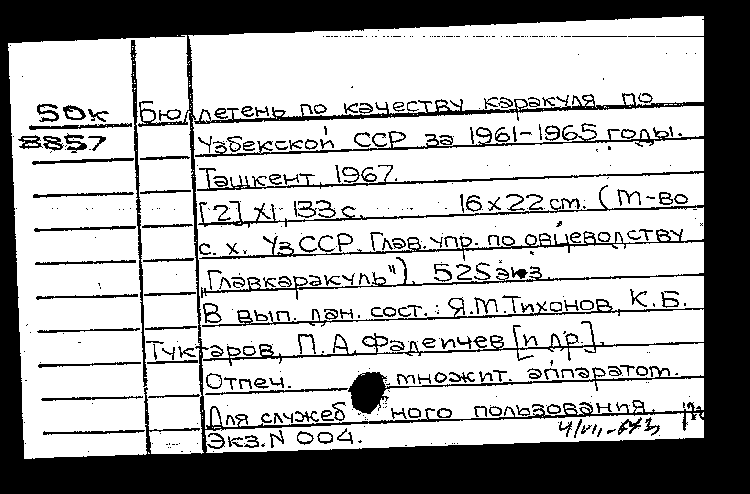 50к Бюллетень по качеству каракуля по
8857 Узбекской ССР за 1961-1965 годы.
Ташкент, 1967.
[2], XI, 133 с. 16 x 22 cm. (М-во
с. х. УзССР. Глав. упр. по овцеводству
„Главкаракуль"). 525 экз.
В вып. дан. сост.: Я.М. Тихонов, К.Б.
Туктаров, П.А. Фадеичев [и др.].
Отпеч. множит. аппаратом.
Для служебного пользования.
Экз. N 004.